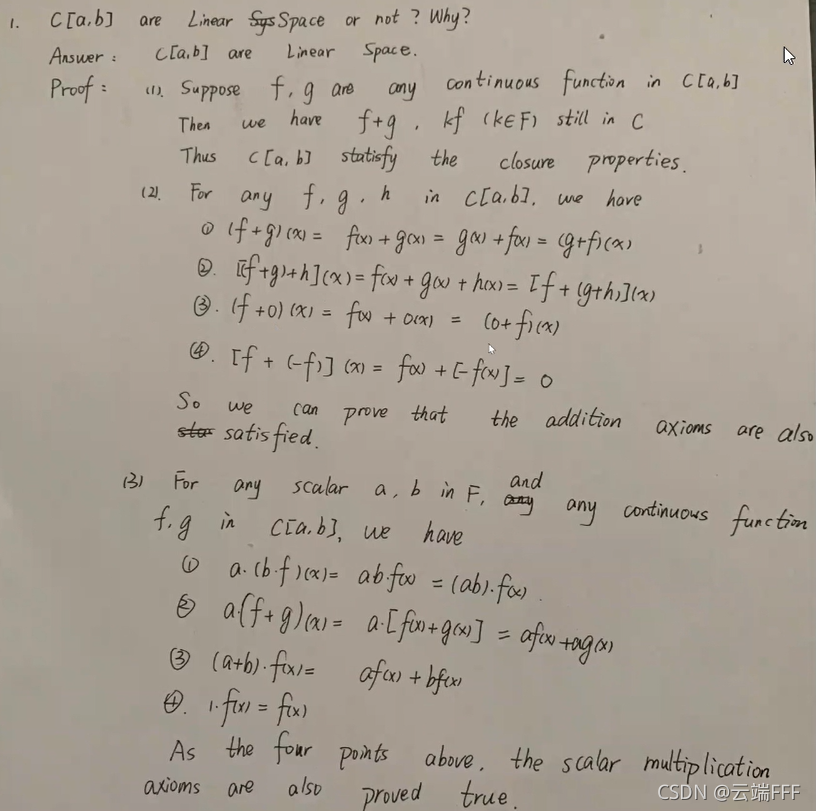 1. C[a,b] are Linear Sys Space or not ? Why?
Answer : C[a,b] are Linear Space.
Proof : (1). Suppose f, g are any continuous function in C[a,b]
Then we have f+g , kf (k∈F) still in C
Thus C[a,b] statisfy the closure properties.
(2). For any f, g, h in C[a,b], we have
① (f+g)(x) = f(x) + g(x) = g(x) + f(x) = (g+f)(x)
②. [(f+g)+h](x) = f(x) + g(x) + h(x) = [f + (g+h)](x)
③. (f+0)(x) = f(x) + 0(x) = (0+f)(x)
④. [f + (-f)](x) = f(x) + [-f(x)] = 0
So we can prove that the addition axioms are also
satisfied.
(3) For any scalar a, b in F, and any any continuous function
f, g in C[a,b], we have
① a·(b·f)(x) = ab·f(x) = (ab)·f(x)
② a·(f+g)(x) = a·[f(x)+g(x)] = af(x)+ag(x)
③ (a+b)·f(x) = af(x) + bf(x)
④. 1·f(x) = f(x)
As the four points above, the scalar multiplication
axioms are also proved true.
CSDN @云端FFF